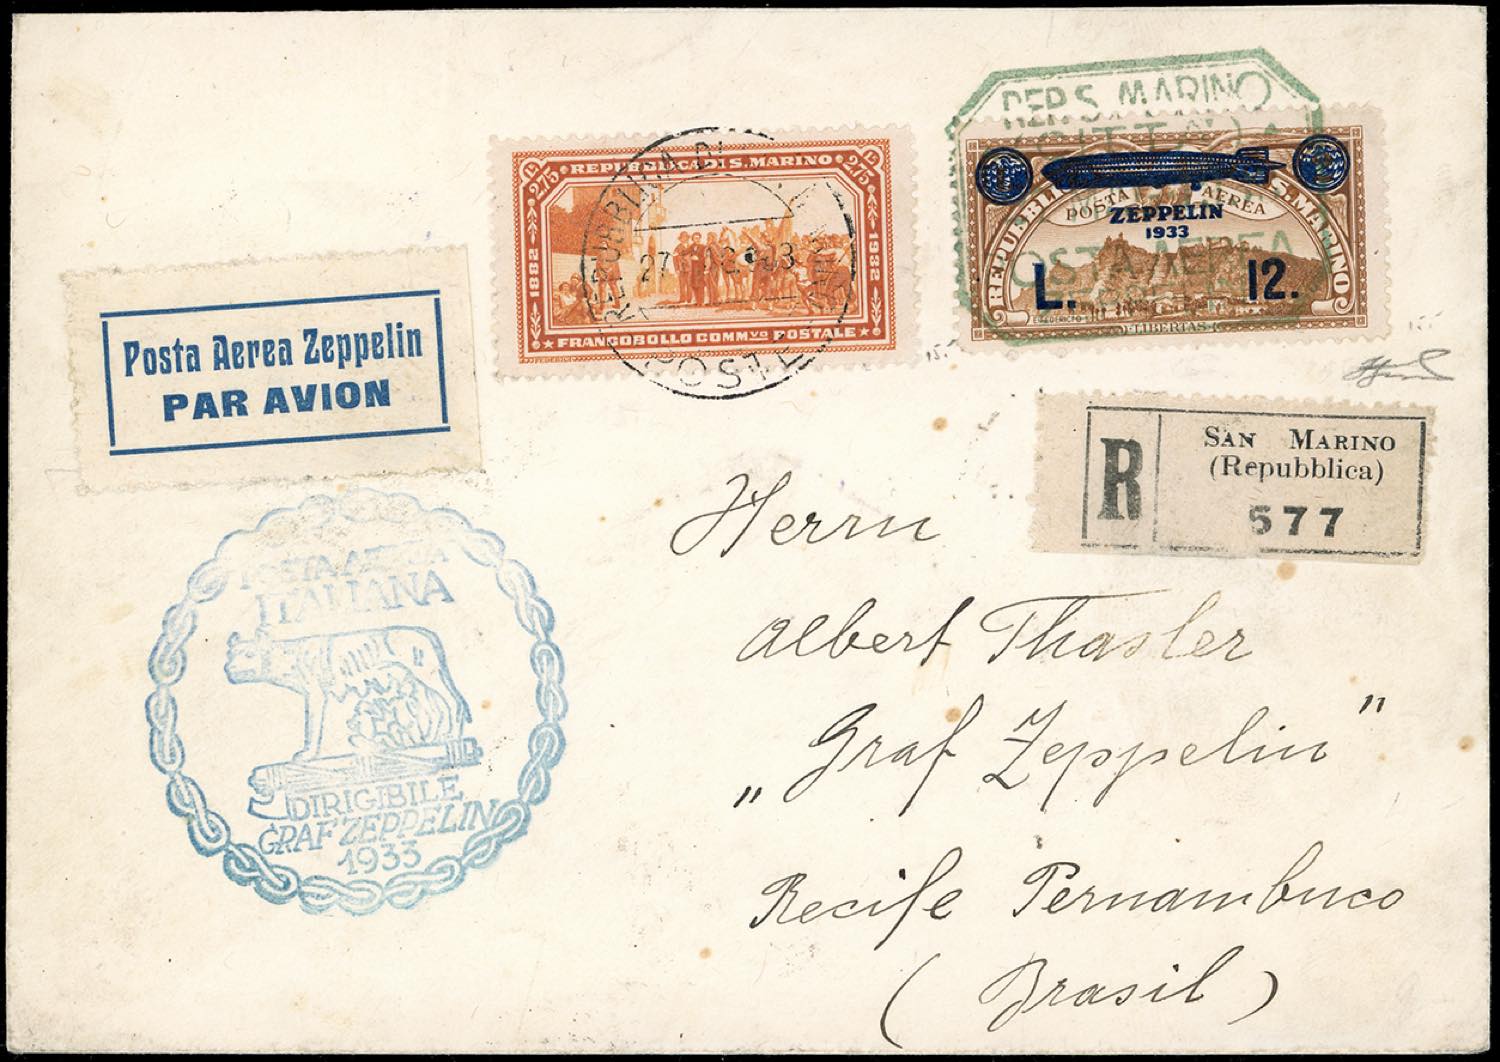 REP. S. MARINO
(CITTÀ)
POSTA AEREA
REPUBBLICA DI S. MARINO
L. 2.75
L. 2.75
1882
1932
FRANCOBOLLO COMMVO POSTALE
REPUBBLICA DI
27
POSTE
POSTA AEREA
REPUBBLICA DI S. MARINO
ZEPPELIN
1933
L. 12.
LIBERTAS
Posta Aerea Zeppelin
PAR AVION
R
SAN MARINO
(Repubblica)
577
POSTA AEREA
ITALIANA
DIRIGIBILE
GRAF ZEPPELIN
1933
Herrn
Albert Thasler
„Graf Zeppelin"
Recife Pernambuco
(Brasil)